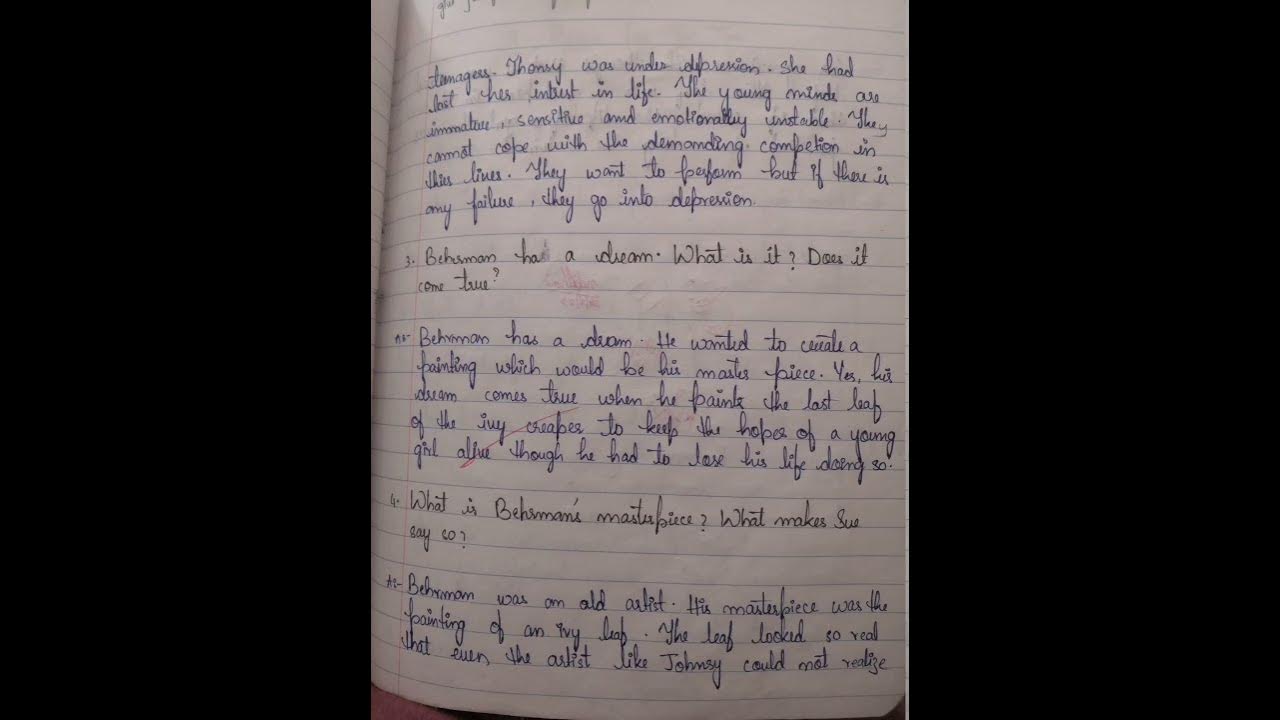 teenagers. Jhonsy was under depression. She had
lost her intrest in life. The young minds are
immature, sensitive and emotionally unstable. They
cannot cope with the demanding competion in
thies lives. They want to perform but if there is
any failure, they go into depression.
3. Behrman has a dream. What is it? Does it
come true?
Ans- Behrman has a dream. He wanted to create a
painting which would be his master piece. Yes, his
dream comes true when he paints the last leaf
of the ivy creaper to keep the hopes of a young
girl alive though he had to lose his life doing so.
4. What is Behrman's masterpiece? What makes Sue
say so?
As- Behrman was an old artist. His masterpiece was the
painting of an ivy leaf. The leaf looked so real
that even the artist like Johnsy could not realize